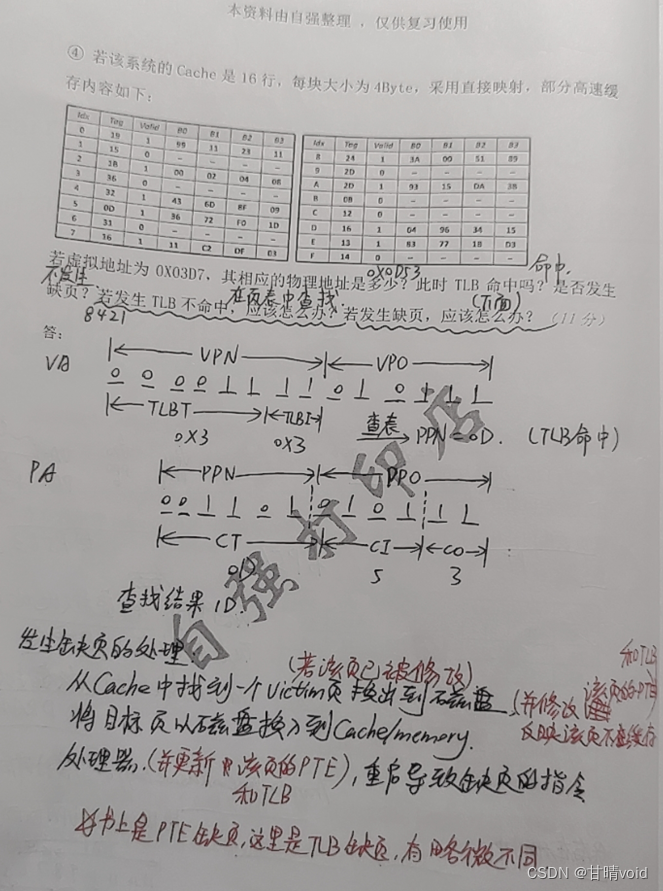 本资料由自强整理，仅供复习使用
④ 若该系统的Cache是16行，每块大小为4Byte，采用直接映射，部分高速缓
存内容如下：
Idx Tag Valid B0 B1 B2 B3
0 19 1 99 11 23 11
1 15 0 - - - -
2 1B 1 00 02 04 08
3 36 0 - - - -
4 32 1 43 6D 8F 09
5 0D 1 36 72 F0 1D
6 31 0 - - - -
7 16 1 11 C2 DF 03
Idx Tag Valid B0 B1 B2 B3
8 24 1 3A 00 51 89
9 2D 0 - - - -
A 2D 1 93 15 DA 3B
B 0B 0 - - - -
C 12 0 - - - -
D 16 1 04 96 34 15
E 13 1 83 77 1B D3
F 14 0 - - - -
若虚拟地址为0X03D7，其相应的物理地址是多少？此时TLB命中吗？是否发生
0X0D53 命中.
不发生 在页表中查找 (下面)
缺页？若发生TLB不命中，应该怎么办？若发生缺页，应该怎么办？（11分）
8421
答：
VPN VPO
VA
0 0 0 0 1 1 1 1 0 1 0 1 1 1
TLBT TLBI
0X3 0X3
查表 PPN=0D. (TLB命中)
PPN PPO
PA
0 0 1 1 0 1 0 1 0 1 1 1
CT CI CO
0D 5 3
查找结果1D.
自强打印店
发生缺页的处理
(若该页已被修改)
从Cache中找到一个victim页换出到磁盘
(并修改该页的PTE
和TLB
反映该页不在缓存
将目标页从磁盘换入到Cache/memory.
处理器,(并更新该页的PTE),重启导致缺页的指令
和TLB
书上是PTE缺页,这里是TLB缺页,有略微不同
CSDN @甘晴void